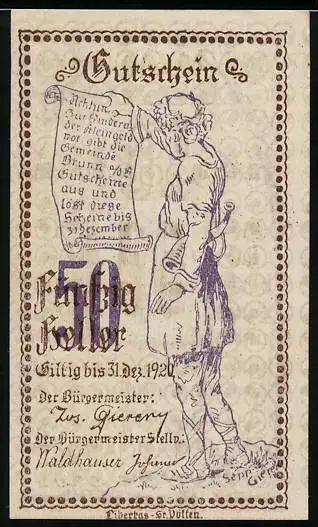 Gutschein
Achtung
Zur Linderung
der Kleingeld
not gibt die
Gemeinde
Brunn a/E
Gutscheine
aus und
löst diese
Scheine bis
31 dezember
50
Fünfzig
Heller
Giltig bis 31. Dez. 1920
Der Bürgermeister:
Jos.
Der Bürgermeister Stellv.:
Waldhauser Johann
Sepp
Libertas - St. Pölten.